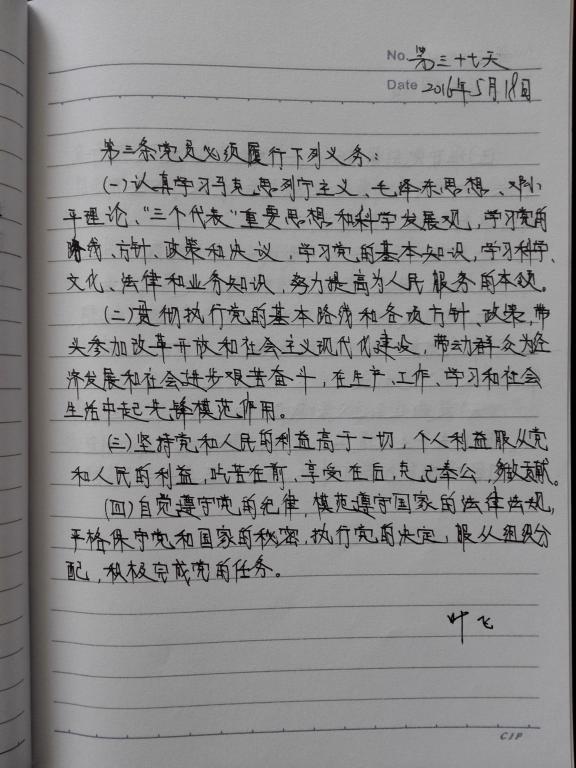 No. 第三十七天
Date 2016年5月18日
第三条党员必须履行下列义务：
(一)认真学习马克思列宁主义、毛泽东思想、邓小
平理论、“三个代表”重要思想和科学发展观，学习党的
路线、方针、政策和决议，学习党的基本知识，学习科学、
文化、法律和业务知识，努力提高为人民服务的本领。
(二)贯彻执行党的基本路线和各项方针、政策，带
头参加改革开放和社会主义现代化建设，带动群众为经
济发展和社会进步艰苦奋斗，在生产、工作、学习和社会
生活中起先锋模范作用。
(三)坚持党和人民的利益高于一切，个人利益服从党
和人民的利益，吃苦在前，享受在后，克己奉公，多做贡献。
(四)自觉遵守党的纪律，模范遵守国家的法律法规，
严格保守党和国家的秘密，执行党的决定，服从组织分
配，积极完成党的任务。
叶飞
CIP